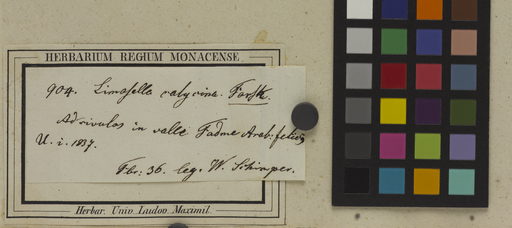 HERBARIUM REGIUM MONACENSE
904. Limosella calycina. Forsk.
Ad rivulos in valle Fadme Arab: felicis
U. i. 1837.
Fbr: 36. leg. W. Schimper.
Herbar. Univ. Ludov. Maximil.